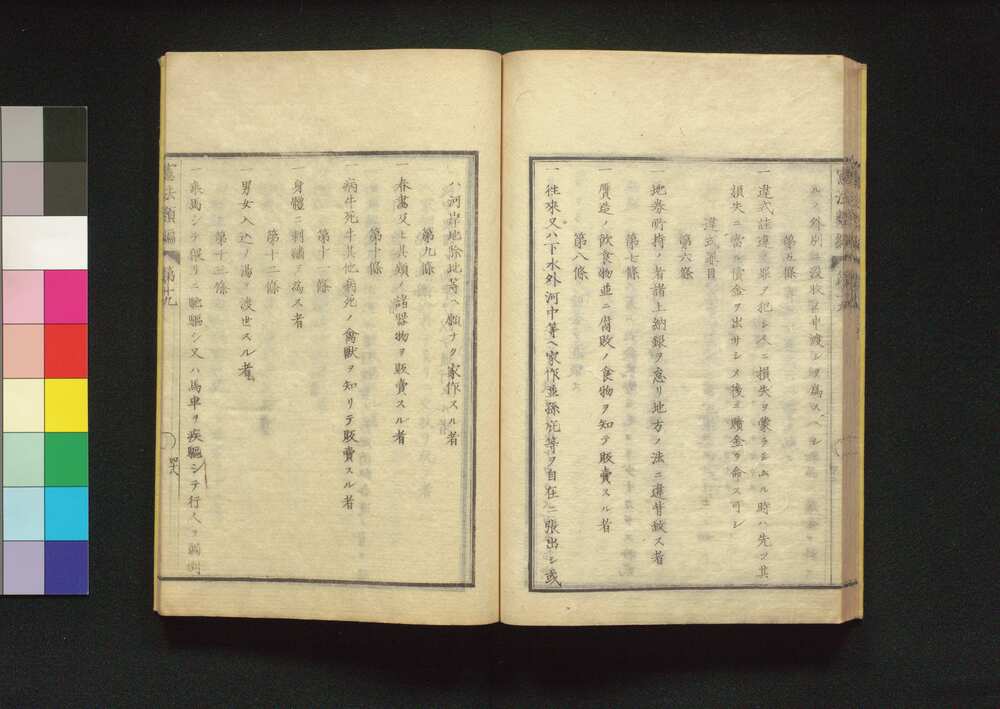 ルノ外別ニ没收ヲ申渡シヲ爲スヘシ
第五條
一違式詿違ノ罪ヲ犯シ人ニ損失ヲ蒙ラシムル時ハ先ツ其
損失ニ當ル償金ヲ出サシメ後ニ贖金ヲ命ス可シ
違式罪目
第六條
一地券所持ノ者諸上納銀ヲ怠リ地方ノ法ニ違背致ス者
第七條
一贋造ノ飲食物並ニ腐敗ノ食物ヲ知テ販賣スル者
第八條
一往來又ハ下水外河中等ヘ家作並孫庇等ヲ自在ニ張出シ或
ハ河岸地除地等ヘ願ナク家作スル者
第九條
一春畵及ヒ其類ノ諸器物ヲ販賣スル者
第十條
一病牛死牛其他病死ノ禽獸ヲ知リテ販賣スル者
第十一條
一身體ニ刺繍ヲ爲ス者
第十二條
男女入込ノ湯ヲ渡世スル者
第十三條
一乘馬シテ猥リニ馳驅シ又ハ馬車ヲ疾驅シテ行人ヲ觸倒
憲法類編
第十九